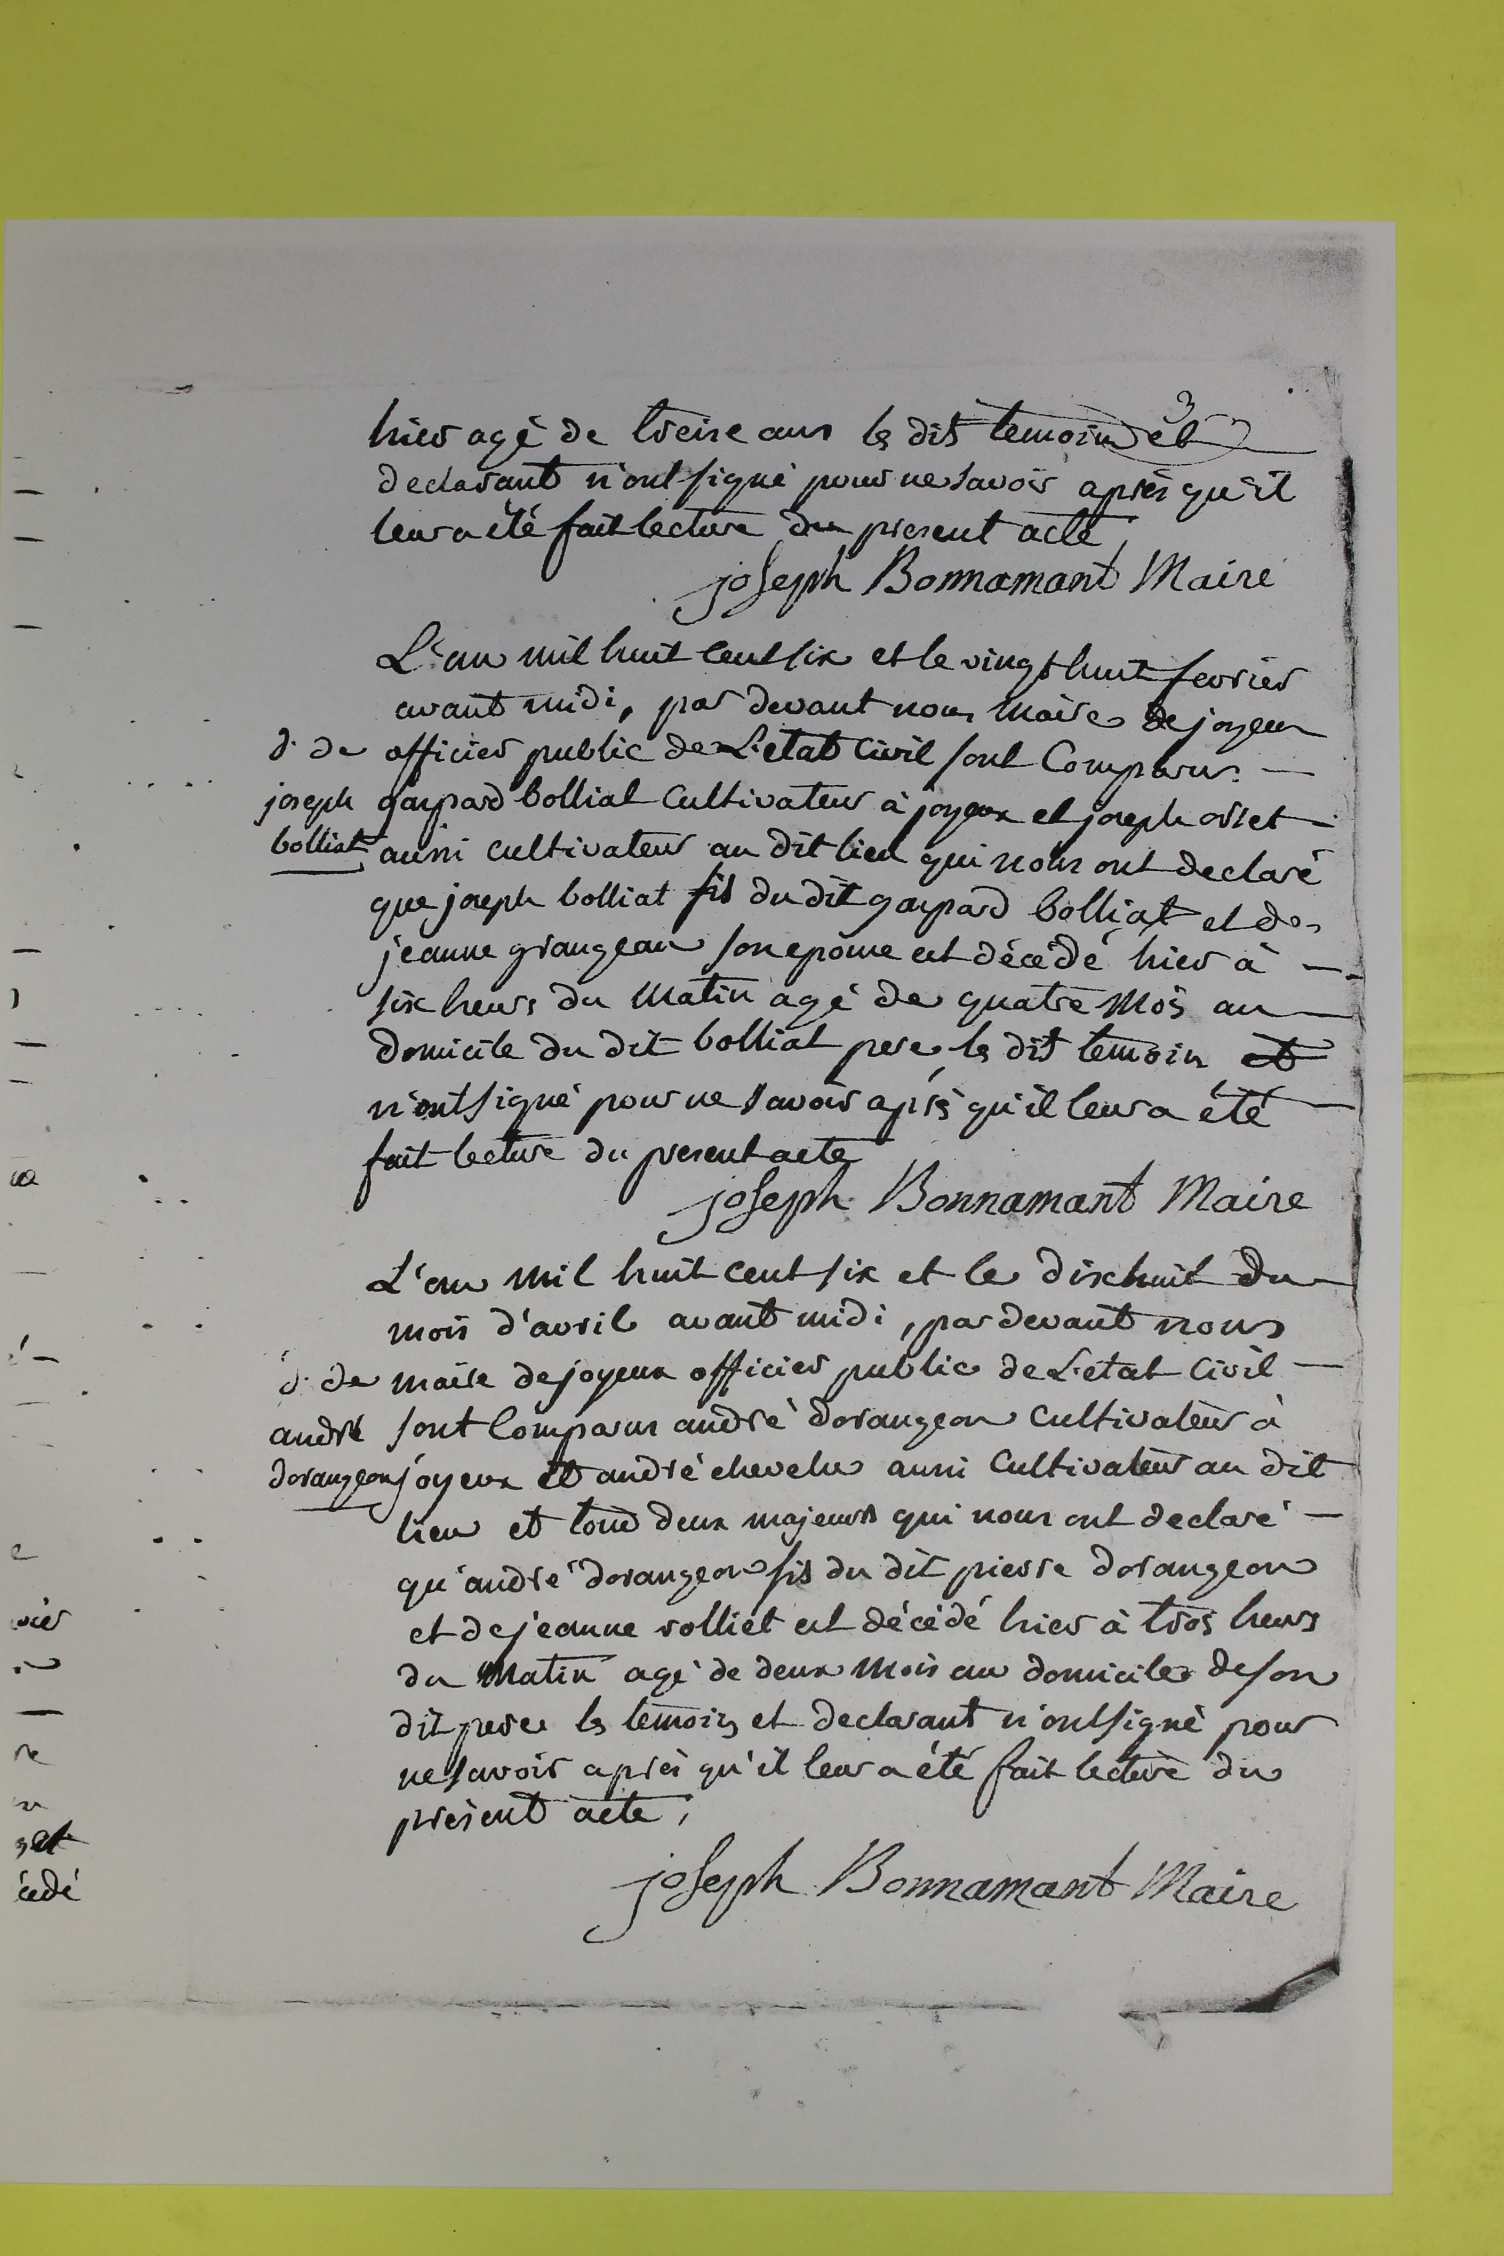 3
hier agé de treize ans les dits temoin et
declarant n'ont signé pour ne savoir après qu'il
leur a été fait lecture du present acte,
joseph Bonnamant Maire
L'an mil huit cent six et le vingt huit fevrier
avant midi, par devant nous maire de joyeux
d. de officier public de L'etat Civil sont Comparus
joseph gaspard bolliat Cultivateur à joyeux et joseph orset
bolliat aussi cultivateur au dit lieu qui nous ont declaré
que joseph bolliat fils du dit gaspard bolliat et de
jeanne grangean son epouse est décédé hier à
six heurs du Matin agé de quatre Mois au
domicile du dit bolliat pere, les dits temoin et
n'ont signé pour ne savoir après qu'il leur a été
fait lecture du present acte
joseph Bonnamant Maire
L'an mil huit cent six et le dixhuit du
mois d'avril avant midi, par devant nous
d. de maire de joyeux officier public de L'etat Civil
andré sont Comparus andré dorangeon Cultivateur à
dorangeon joyeux et andré chevelu aussi Cultivateur au dit
lieu et tous deux majeurs qui nous ont declaré
qu'andré dorangeon fils du dit pierre dorangeon
et de jeanne rolliet est décédé hier à trois heurs
du Matin agé de deux Mois au domicile de son
dit pere les temoins et declarant n'ont signé pour
ne savoir après qu'il leur a été fait lecture du
présent acte,
joseph Bonnamant Maire